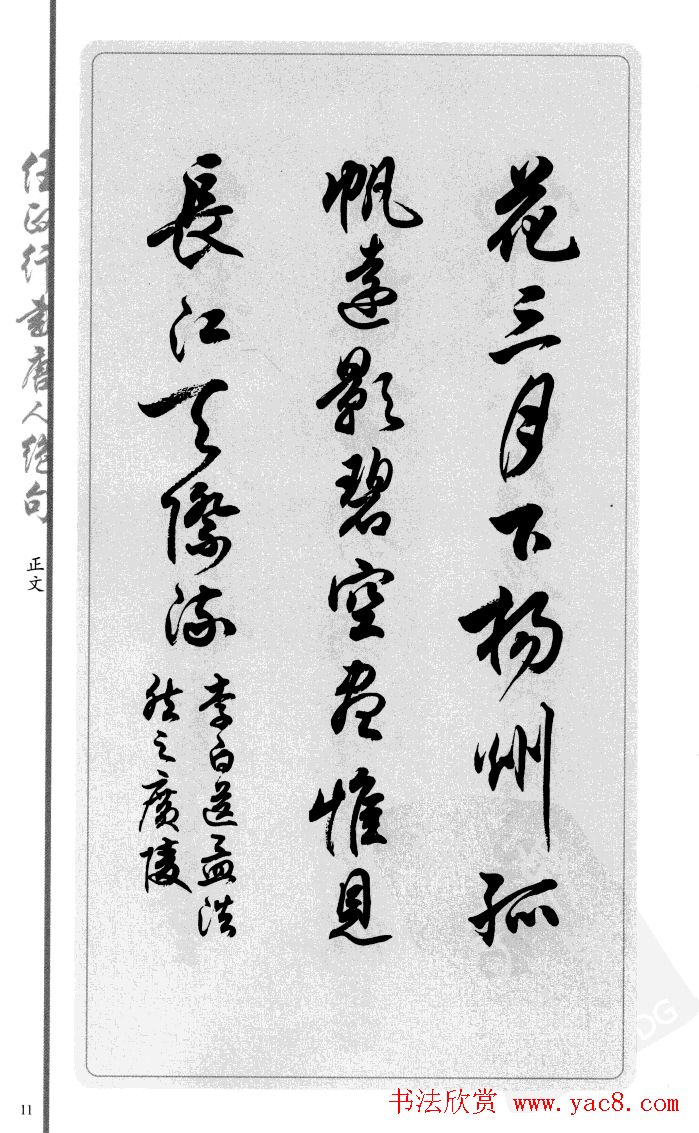 花三月下扬州孤
帆远影碧空尽惟见
長江天際流
李白送孟浩
然之廣陵
任政行書唐人绝句
正文
11
书法欣赏 www.yac8.com
DG